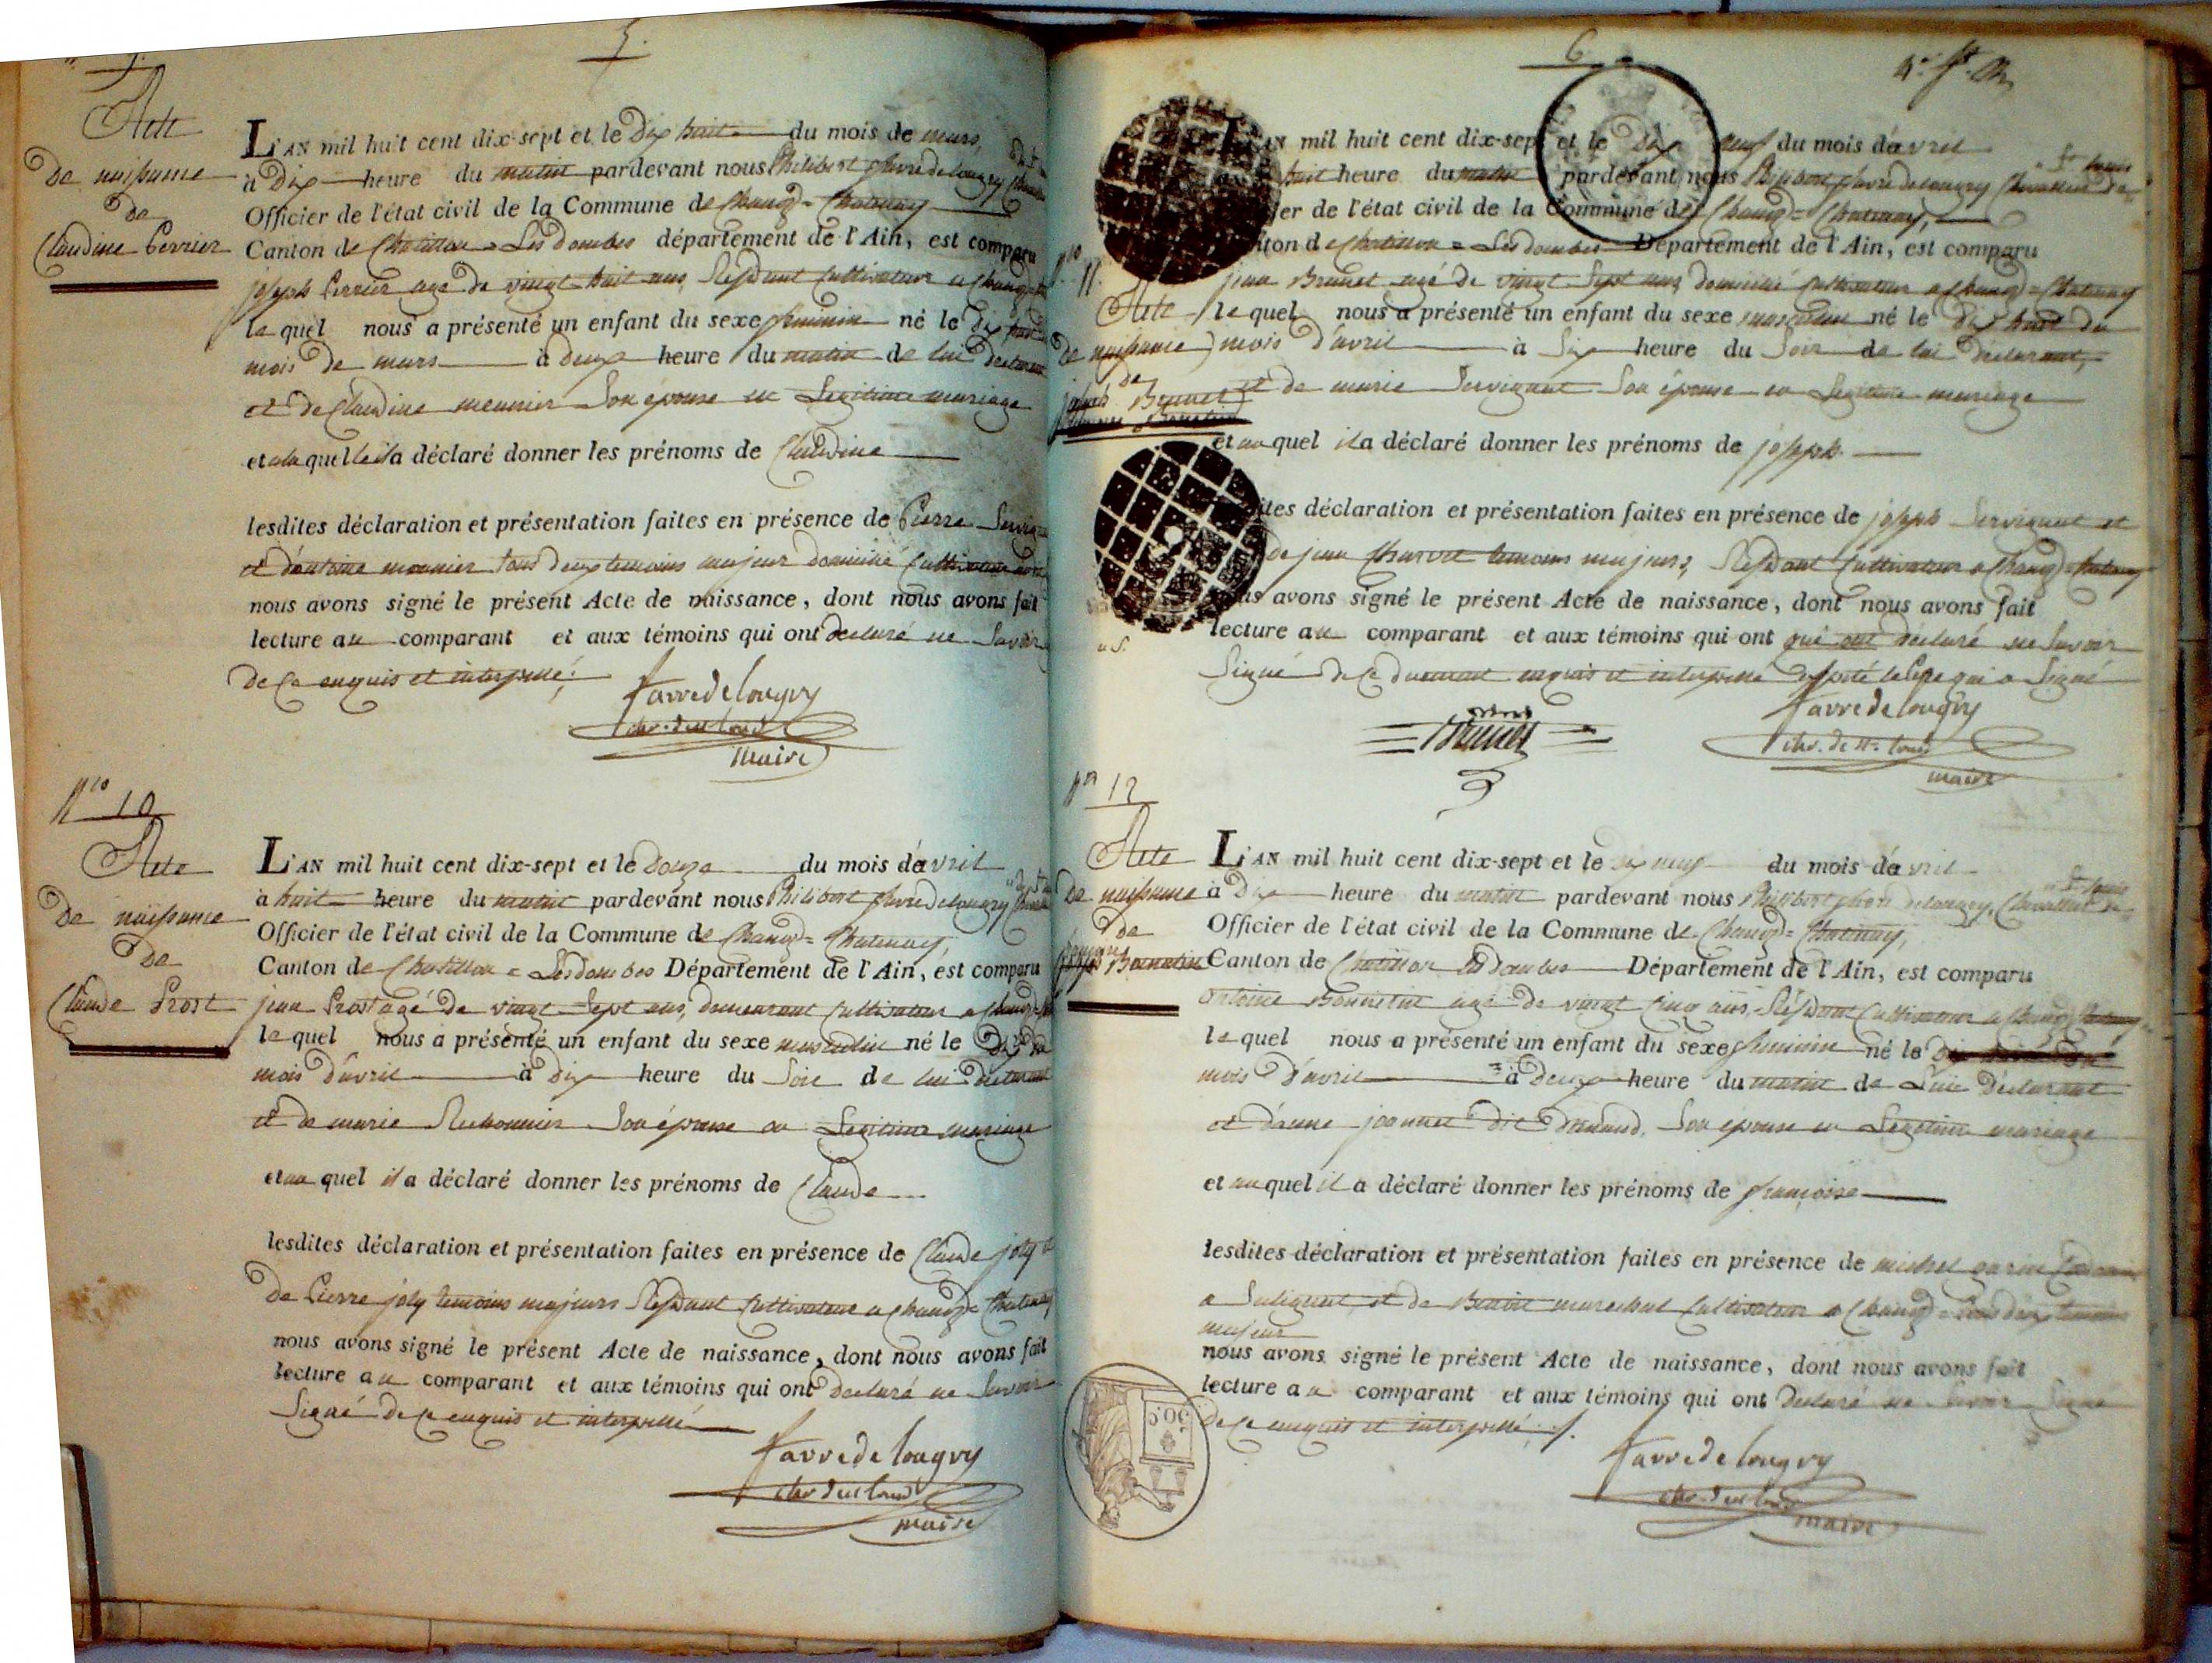 5.
Acte
De naissance
De
Claudine Perrier
L'AN mil huit cent dix-sept et le Dix huit du mois de mars,
à Dix heure du matin pardevant nous Philibert favre de longry
Officier de l'état civil de la Commune de Chanoz = Chatenay
Canton de Chatillon = Les dombes département de l'Ain, est comparu
joseph Perrier agé de vingt-huit ans, Résidant Cultivateur a Chanoz
le quel nous a présenté un enfant du sexe feminin né le dix huit
mois de mars à deux heure du matin de lui declarant
et de Claudine meunier Son épouse en Legitime mariage
et a la quelle il a déclaré donner les prénoms de Claudine
lesdites déclaration et présentation faites en présence de Pierre
et d'antoine meunier tous deux temoins majeur domicilié Cultivateur
nous avons signé le présent Acte de naissance, dont nous avons fait
lecture au comparant et aux témoins qui ont declaré ne Savoir
de Ce enquis et interpellé.
favredelongry
chr. de st louis
maire
No 10
Acte
De naissance
De
Claude Prost
L'AN mil huit cent dix-sept et le Douze du mois d'avril
à huit heure du matin pardevant nous Philibert favre de longry
Officier de l'état civil de la Commune de Chanoz = Chatenay,
Canton de Chatillon = Les dombes Département de l'Ain, est comparu
jean Prost agé de vingt-Sept ans, demeurant Cultivateur a Chanoz
le quel nous a présenté un enfant du sexe masculin né le dix du
mois d'avril à dix heure du Soir de lui declarant
et de marie Son épouse en Legitime mariage
et au quel il a déclaré donner les prénoms de Claude
lesdites déclaration et présentation faites en présence de Claude joly et
de Pierre joly temoins majeurs Résidant Cultivateur a Chanoz = Chatenay
nous avons signé le présent Acte de naissance, dont nous avons fait
lecture au comparant et aux témoins qui ont declaré ne Savoir
Signé de Ce enquis et interpellé
favredelongry
chr. de st louis
maire
6
No 11.
Acte
De naissance
De
joseph Brunet
L'AN mil huit cent dix-sept et le dix neuf du mois d'avril
huit heure du matin pardevant nous Philibert favre de longry Chevallier de St louis
Officier de l'état civil de la Commune de Chanoz = Chatenay,
Canton de Chatillon = Les dombes Département de l'Ain, est comparu
jean Brunet agé de vingt Sept ans, domicilié Cultivateur a Chanoz = Chatenay
le quel nous a présenté un enfant du sexe masculin né le dix huit du
mois d'avril à Six heure du Soir de lui declarant,
et de marie Servignat Son épouse en Legitime mariage
et au quel il a déclaré donner les prénoms de joseph
lesdites déclaration et présentation faites en présence de joseph Servignat et
de jean Charvet temoins majeurs, Résidant Cultivateur a Chanoz = Chatenay
nous avons signé le présent Acte de naissance, dont nous avons fait
lecture au comparant et aux témoins qui ont qui ont declaré ne Savoir
Signé de Ce duement enquis et interpellé excepté le Père qui a Signé
Brunet
favredelongry
chr. de st louis
maire
No 12
Acte
De naissance
De
L'AN mil huit cent dix-sept et le dix neuf du mois d'avril
à Dix heure du matin pardevant nous Philibert favre de longry, Chevallier de St louis
Officier de l'état civil de la Commune de Chanoz = Chatenay,
Canton de Chatillon Les dombes Département de l'Ain, est comparu
antoine agé de vingt Cinq ans, Résidant Cultivateur a Chanoz Chatenay
le quel nous a présenté un enfant du sexe feminin né le
mois d'avril à deux heure du matin de Lui declarant
et d'anne joannet dit Son épouse en Legitime mariage
et au quel il a déclaré donner les prénoms de françoise
lesdites déclaration et présentation faites en présence de michel
a Sulignat, et de Benoit marechal Cultivateur a Chanoz = tous deux temoins
majeur
nous avons signé le présent Acte de naissance, dont nous avons fait
lecture au comparant et aux témoins qui ont declaré ne Savoir Signé
de Ce enquis et interpellé.
favredelongry
chr. de st louis
maire
50.C